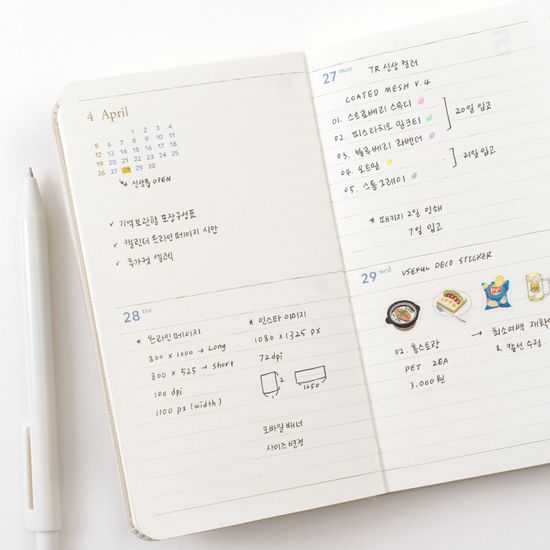 4 April
1 2 3 4
5 6 7 8 9 10 11
12 13 14 15 16 17 18
19 20 21 22 23 24 25
26 27 28 29 30
신상품 OPEN
✓ 기억보관함 포장구성표
✓ 캘린더 온라인 페이지 시안
✓ 추가컷 셀렉
27 mon TR 신상 컬러
COATED MESH V.4
01. 스트로베리 스무디
02. 피스타치오 밀크티
20일 입고
03. 블루베리 라벤더
04. 오트밀
21일 입고
05. 스톤그레이
* 패키지 2일 인쇄
7일 입고
28 tue
* 온라인 페이지
800 x 1000 → Long
800 x 525 → short
100 dpi
1100 px (width)
* 인스타 이미지
1080 x 1325 px
72 dpi
2
1250
모바일 배너
사이즈 변경
29 wed USEFUL DECO STICKER
02. 레스토랑
PET 2EA
3.000원
→ 최소여백 재확
& 칼선 수정.